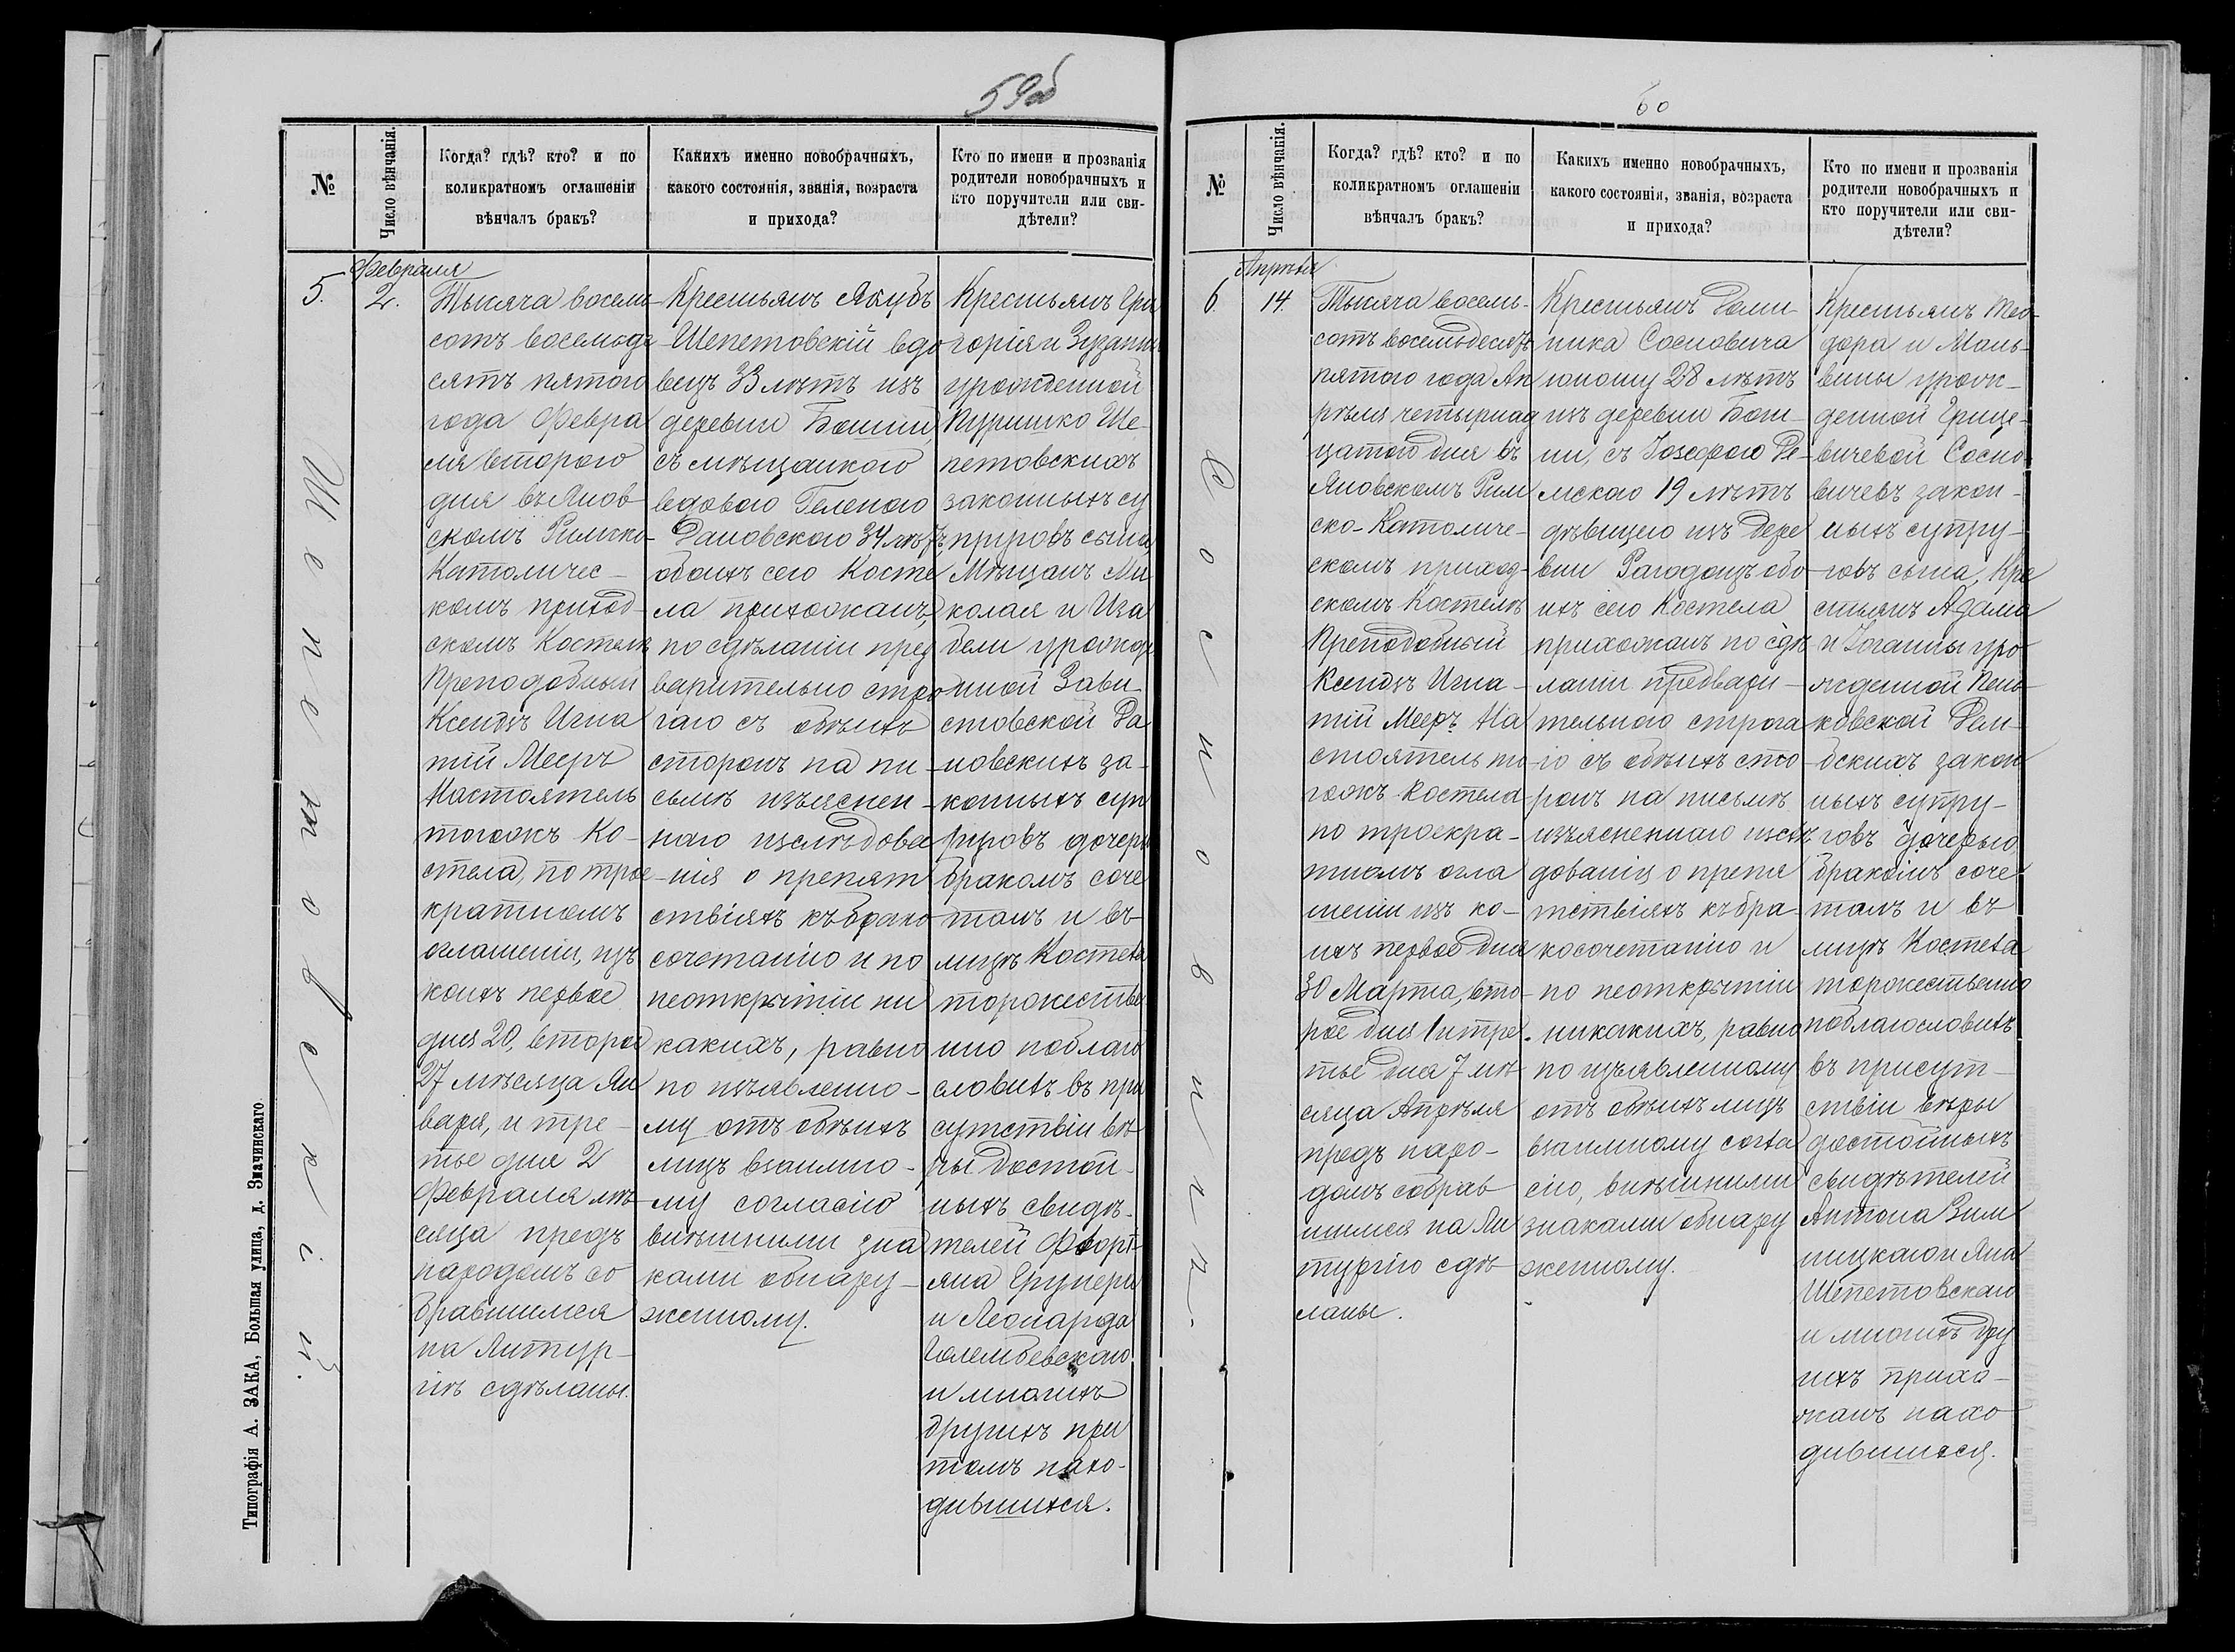 59об
№
Число вѣнчанія.
Когда? гдѣ? кто? и по
коликратномъ оглашеніи
вѣнчалъ бракъ?
Какихъ именно новобрачныхъ,
какого состоянія, званія, возраста
и прихода?
Кто по имени и прозванія
родители новобрачныхъ и
кто поручители или сви-
дѣтели?
5.
Февраля
2.
Тысяча восемь
сотъ восемьде
сятъ пятого
года Февра
ля второго
дня въ Янов
скомъ Римско-
Католичес-
комъ приход-
скомъ Костелѣ
Преподобный
Ксендзъ Игна
тій Мееръ
Настоятель
тогожъ Ко-
стела, по трое
кратномъ
оглашеніи, изъ
коихъ первое
дня 20, второе
27 мѣсяца Ян
варя, и тре-
тье дня 2
Февраля мѣ-
сяца предъ
народомъ со
бравшимся
на Литур-
гіѣ сдѣланы.
Крестьянъ Якубъ
Шепетовскій вдо
вецъ 33 лѣтъ изъ
деревни Башни,
съ мѣщанкою
вдовою Геленою
Дановскою 34 лѣтъ
обоихъ сего Косте
ла прихожанъ,
по сдѣланіи пред
варительно стро
гаго съ обѣихъ
сторонъ на пи-
сьмѣ изъяснен-
наго изслѣдова
нія о препят
ствіяхъ къ брако
сочетанію и по
неоткрытіи ни
какихъ, равно
по изъявленно-
му отъ обѣихъ
лицъ взаимно-
му согласію
внѣшними зна
ками обнару-
женному.
Крестьянъ Гри
горія и Зузанны
урожденной
Куришко Ше-
петовскихъ
законныхъ су
пруговъ сына,
Мѣщанъ Ми
колая и Иза
бели урожде
нной Зави-
стовской Да
новскихъ за-
конныхъ суп
руговъ дочерью
бракомъ соче
талъ и въ
лицѣ Костела
торжестве
нно поблаго
словилъ въ при
сутствіи вѣ
ры достой-
ныхъ свидѣ-
телей Флорі-
яна Грунери
и Леонарда
Голембевскаго
и многихъ
другихъ при
томъ нахо-
дившихся.
Шепетовскій.
Типографія А. ЗАКА, Большая улица, д. Значинскаго
60
№
Число вѣнчанія.
Когда? гдѣ? кто? и по
коликратномъ оглашеніи
вѣнчалъ бракъ?
Какихъ именно новобрачныхъ,
какого состоянія, званія, возраста
и прихода?
Кто по имени и прозванія
родители новобрачныхъ и
кто поручители или сви-
дѣтели?
6.
Апрѣля
14.
Тысяча восемь-
сотъ восемьдесятъ
пятого года Ап
рѣля четырнад
цатого дня въ
Яновскомъ Рим
ско-Католиче-
скомъ приход-
скомъ Костелѣ
Преподобный
Ксендзъ Игна-
тій Мееръ На
стоятель то-
гожъ Костела
по троекра-
тномъ огла
шеніи изъ ко-
ихъ первое дня
30 Марта, вто-
рое дня 1 и тре-
тье дня 7 мѣ
сяца Апрѣля
предъ наро-
домъ собрав
шимся на Ли
тургію сдѣ
ланы.
Крестьянъ Доми-
ника Сосновича
юношу 28 лѣтъ
изъ деревни Баш-
ни, съ Іозефою Де-
мскою 19 лѣтъ
дѣвицею изъ дере
вни Рагодощъ обо
ихъ сего Костела
прихожанъ по сдѣ
ланіи предвари-
тельного строга
го съ обѣихъ сто
ронъ на письмѣ
изъясненнаго изслѣ
дованія о препя
тствіяхъ къ бра-
косочетанію и
по неоткрытіи
никакихъ, равно
по изъявленному
отъ обѣихъ лицъ
взаимному согла
сію, внѣшними
знаками обнару
женному.
Крестьянъ Тео-
дора и Маль-
вины урож-
денной Грице-
вичевой Сосно-
вичевъ закон-
ныхъ супру-
говъ сына, Кре
стьянъ Адама
и Іоганны уро
жденной Пень-
ковской Дем-
бскихъ закон
ныхъ супру-
говъ дочерью,
бракомъ соче
талъ и въ
лицѣ Костела
торжественно
поблагословилъ
въ присут-
ствіи вѣры
достойныхъ
свидѣтелей
Антона Зим
ницкаго и Яна
Шепетовскаго
и многихъ дру
гихъ прихо-
жанъ нахо
дившихся.
Сосновичъ.